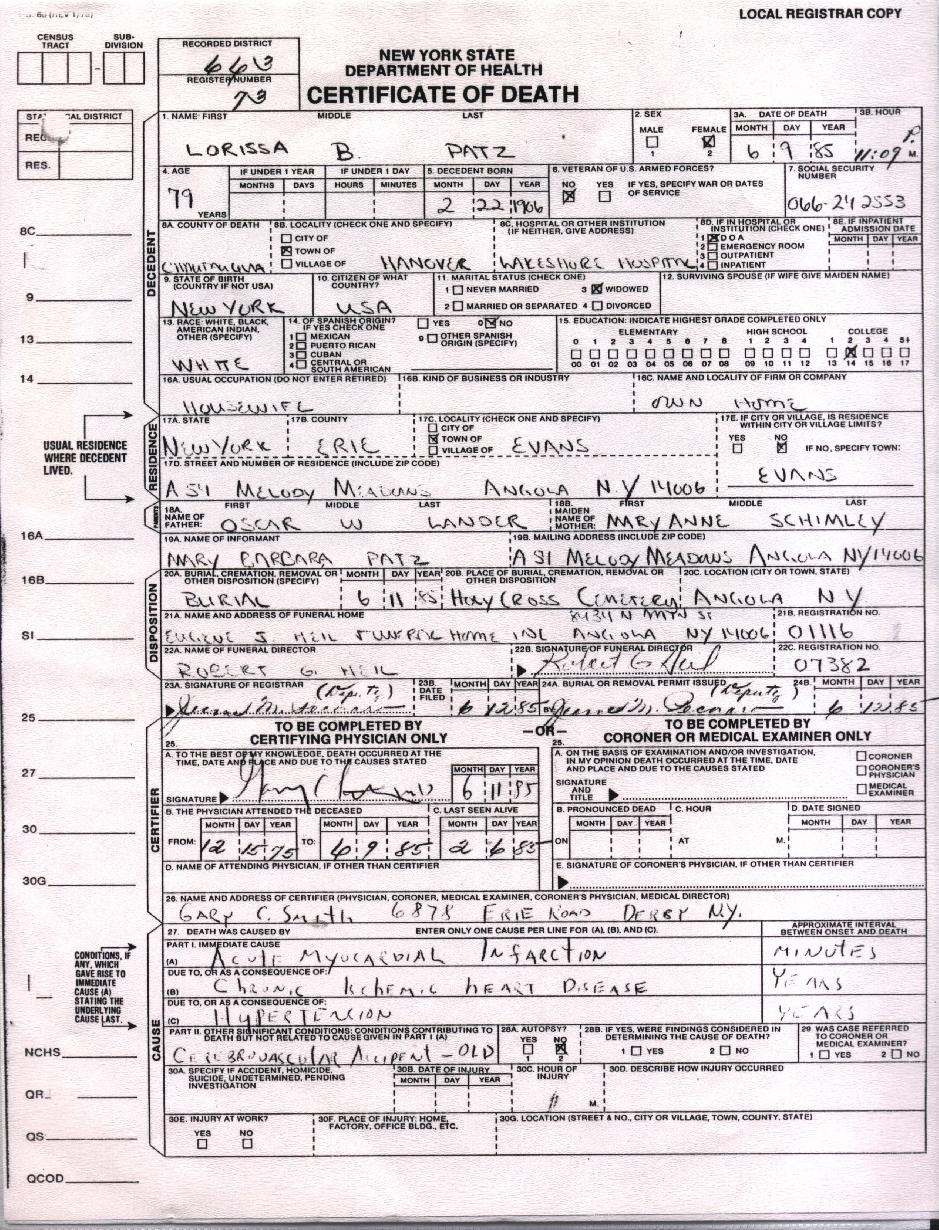 LOCAL REGISTRAR COPY
CENSUS TRACT
SUB-DIVISION
RECORDED DISTRICT
663
REGISTER NUMBER
73
NEW YORK STATE
DEPARTMENT OF HEALTH
CERTIFICATE OF DEATH
REG
RES.
DECEDENT
1. NAME: FIRST MIDDLE LAST
LORISSA B. PATZ
2. SEX
MALE FEMALE
1 2
3A. DATE OF DEATH
MONTH DAY YEAR
6 9 85
3B. HOUR
11:07 P. M.
4. AGE
79 YEARS
IF UNDER 1 YEAR
MONTHS DAYS
IF UNDER 1 DAY
HOURS MINUTES
5. DECEDENT BORN
MONTH DAY YEAR
2 22 1906
6. VETERAN OF U.S. ARMED FORCES?
NO YES IF YES, SPECIFY WAR OR DATES OF SERVICE
7. SOCIAL SECURITY NUMBER
066-24 2553
8A. COUNTY OF DEATH
CHAUTAUQUA
8B. LOCALITY (CHECK ONE AND SPECIFY)
CITY OF
TOWN OF
VILLAGE OF
HANOVER
8C. HOSPITAL OR OTHER INSTITUTION (IF NEITHER, GIVE ADDRESS)
LAKESHORE HOSPITAL
8D. IF IN HOSPITAL OR INSTITUTION (CHECK ONE)
1 D O A
2 EMERGENCY ROOM
3 OUTPATIENT
4 INPATIENT
8E. IF INPATIENT ADMISSION DATE
MONTH DAY YEAR
9. STATE OF BIRTH (COUNTRY IF NOT USA)
NEW YORK
10. CITIZEN OF WHAT COUNTRY?
USA
11. MARITAL STATUS (CHECK ONE)
1 NEVER MARRIED 3 WIDOWED
2 MARRIED OR SEPARATED 4 DIVORCED
12. SURVIVING SPOUSE (IF WIFE GIVE MAIDEN NAME)
13. RACE: WHITE, BLACK, AMERICAN INDIAN, OTHER (SPECIFY)
WHITE
14. OF SPANISH ORIGIN? IF YES CHECK ONE
YES 0 NO
1 MEXICAN
2 PUERTO RICAN
3 CUBAN
4 CENTRAL OR SOUTH AMERICAN
9 OTHER SPANISH ORIGIN (SPECIFY)
15. EDUCATION: INDICATE HIGHEST GRADE COMPLETED ONLY
ELEMENTARY HIGH SCHOOL COLLEGE
0 1 2 3 4 5 6 7 8 1 2 3 4 1 2 3 4 5+
00 01 02 03 04 05 06 07 08 09 10 11 12 13 14 15 16 17
16A. USUAL OCCUPATION (DO NOT ENTER RETIRED)
HOUSEWIFE
16B. KIND OF BUSINESS OR INDUSTRY
16C. NAME AND LOCALITY OF FIRM OR COMPANY
OWN HOME
USUAL RESIDENCE WHERE DECEDENT LIVED.
RESIDENCE
17A. STATE
NEW YORK
17B. COUNTY
ERIE
17C. LOCALITY (CHECK ONE AND SPECIFY)
CITY OF
TOWN OF
VILLAGE OF
EVANS
17E. IF CITY OR VILLAGE, IS RESIDENCE WITHIN CITY OR VILLAGE LIMITS?
YES NO IF NO, SPECIFY TOWN:
EVANS
17D. STREET AND NUMBER OF RESIDENCE (INCLUDE ZIP CODE)
A 51 MELODY MEADOWS ANGOLA N.Y 14006
PARENTS
18A. NAME OF FATHER: FIRST MIDDLE LAST
OSCAR W LANDER
18B. MAIDEN NAME OF MOTHER: FIRST MIDDLE LAST
MARY ANNE SCHIMLEY
19A. NAME OF INFORMANT
MARY BARBARA PATZ
19B. MAILING ADDRESS (INCLUDE ZIP CODE)
A 51 MELODY MEADOWS ANGOLA NY 14006
DISPOSITION
20A. BURIAL, CREMATION, REMOVAL OR OTHER DISPOSITION (SPECIFY)
BURIAL
MONTH DAY YEAR
6 11 85
20B. PLACE OF BURIAL, CREMATION, REMOVAL OR OTHER DISPOSITION
HOLY CROSS CEMETERY
20C. LOCATION (CITY OR TOWN, STATE)
ANGOLA NY
21A. NAME AND ADDRESS OF FUNERAL HOME
EUGENE J. HEIL FUNERAL HOME INC ANGOLA NY 14006
21B. REGISTRATION NO.
01116
22A. NAME OF FUNERAL DIRECTOR
ROBERT G. HEIL
22B. SIGNATURE OF FUNERAL DIRECTOR
Robert G Heil
22C. REGISTRATION NO.
07382
23A. SIGNATURE OF REGISTRAR
(Deputy)
23B. DATE FILED
MONTH DAY YEAR
6 12 85
24A. BURIAL OR REMOVAL PERMIT ISSUED
(Deputy)
24B. MONTH DAY YEAR
6 12 85
CERTIFIER
TO BE COMPLETED BY CERTIFYING PHYSICIAN ONLY
—OR—
TO BE COMPLETED BY CORONER OR MEDICAL EXAMINER ONLY
25.
A. TO THE BEST OF MY KNOWLEDGE, DEATH OCCURRED AT THE TIME, DATE AND PLACE AND DUE TO THE CAUSES STATED
SIGNATURE
MONTH DAY YEAR
6 11 85
25.
A. ON THE BASIS OF EXAMINATION AND/OR INVESTIGATION, IN MY OPINION DEATH OCCURRED AT THE TIME, DATE AND PLACE AND DUE TO THE CAUSES STATED
SIGNATURE AND TITLE
CORONER
CORONER'S PHYSICIAN
MEDICAL EXAMINER
B. THE PHYSICIAN ATTENDED THE DECEASED
MONTH DAY YEAR MONTH DAY YEAR
FROM: 12 15 75 TO: 6 9 85
C. LAST SEEN ALIVE
MONTH DAY YEAR
2 6 85
B. PRONOUNCED DEAD
MONTH DAY YEAR
ON
C. HOUR
AT M.
D. DATE SIGNED
MONTH DAY YEAR
D. NAME OF ATTENDING PHYSICIAN, IF OTHER THAN CERTIFIER
E. SIGNATURE OF CORONER'S PHYSICIAN, IF OTHER THAN CERTIFIER
26. NAME AND ADDRESS OF CERTIFIER (PHYSICIAN, CORONER, MEDICAL EXAMINER, CORONER'S PHYSICIAN, MEDICAL DIRECTOR)
GARY C. Smith 6878 ERIE ROAD DERBY N.Y.
CONDITIONS, IF ANY, WHICH GAVE RISE TO IMMEDIATE CAUSE (A) STATING THE UNDERLYING CAUSE LAST.
CAUSE
27. DEATH WAS CAUSED BY ENTER ONLY ONE CAUSE PER LINE FOR (A), (B), AND (C).
APPROXIMATE INTERVAL BETWEEN ONSET AND DEATH
PART I. IMMEDIATE CAUSE
(A) ACUTE MYOCARDIAL INFARCTION
MINUTES
DUE TO, OR AS A CONSEQUENCE OF:
(B) CHRONIC ISCHEMIC HEART DISEASE
YEARS
DUE TO, OR AS A CONSEQUENCE OF:
(C) HYPERTENCION
YEARS
PART II. OTHER SIGNIFICANT CONDITIONS: CONDITIONS CONTRIBUTING TO DEATH BUT NOT RELATED TO CAUSE GIVEN IN PART I (A)
CEREBROVASCULAR ACCIDENT - OLD
28A. AUTOPSY?
YES NO
1 2
28B. IF YES, WERE FINDINGS CONSIDERED IN DETERMINING THE CAUSE OF DEATH?
1 YES 2 NO
29 WAS CASE REFERRED TO CORONER OR MEDICAL EXAMINER?
1 YES 2 NO
30A. SPECIFY IF ACCIDENT, HOMICIDE, SUICIDE, UNDETERMINED, PENDING INVESTIGATION
30B. DATE OF INJURY
MONTH DAY YEAR
30C. HOUR OF INJURY
M.
30D. DESCRIBE HOW INJURY OCCURRED
30E. INJURY AT WORK?
YES NO
30F. PLACE OF INJURY: HOME, FACTORY, OFFICE BLDG., ETC.
30G. LOCATION (STREET & NO., CITY OR VILLAGE, TOWN, COUNTY, STATE)
8C
9
13
14
16A
16B
SI
25
27
30
30G
NCHS
QR
QS
QCOD